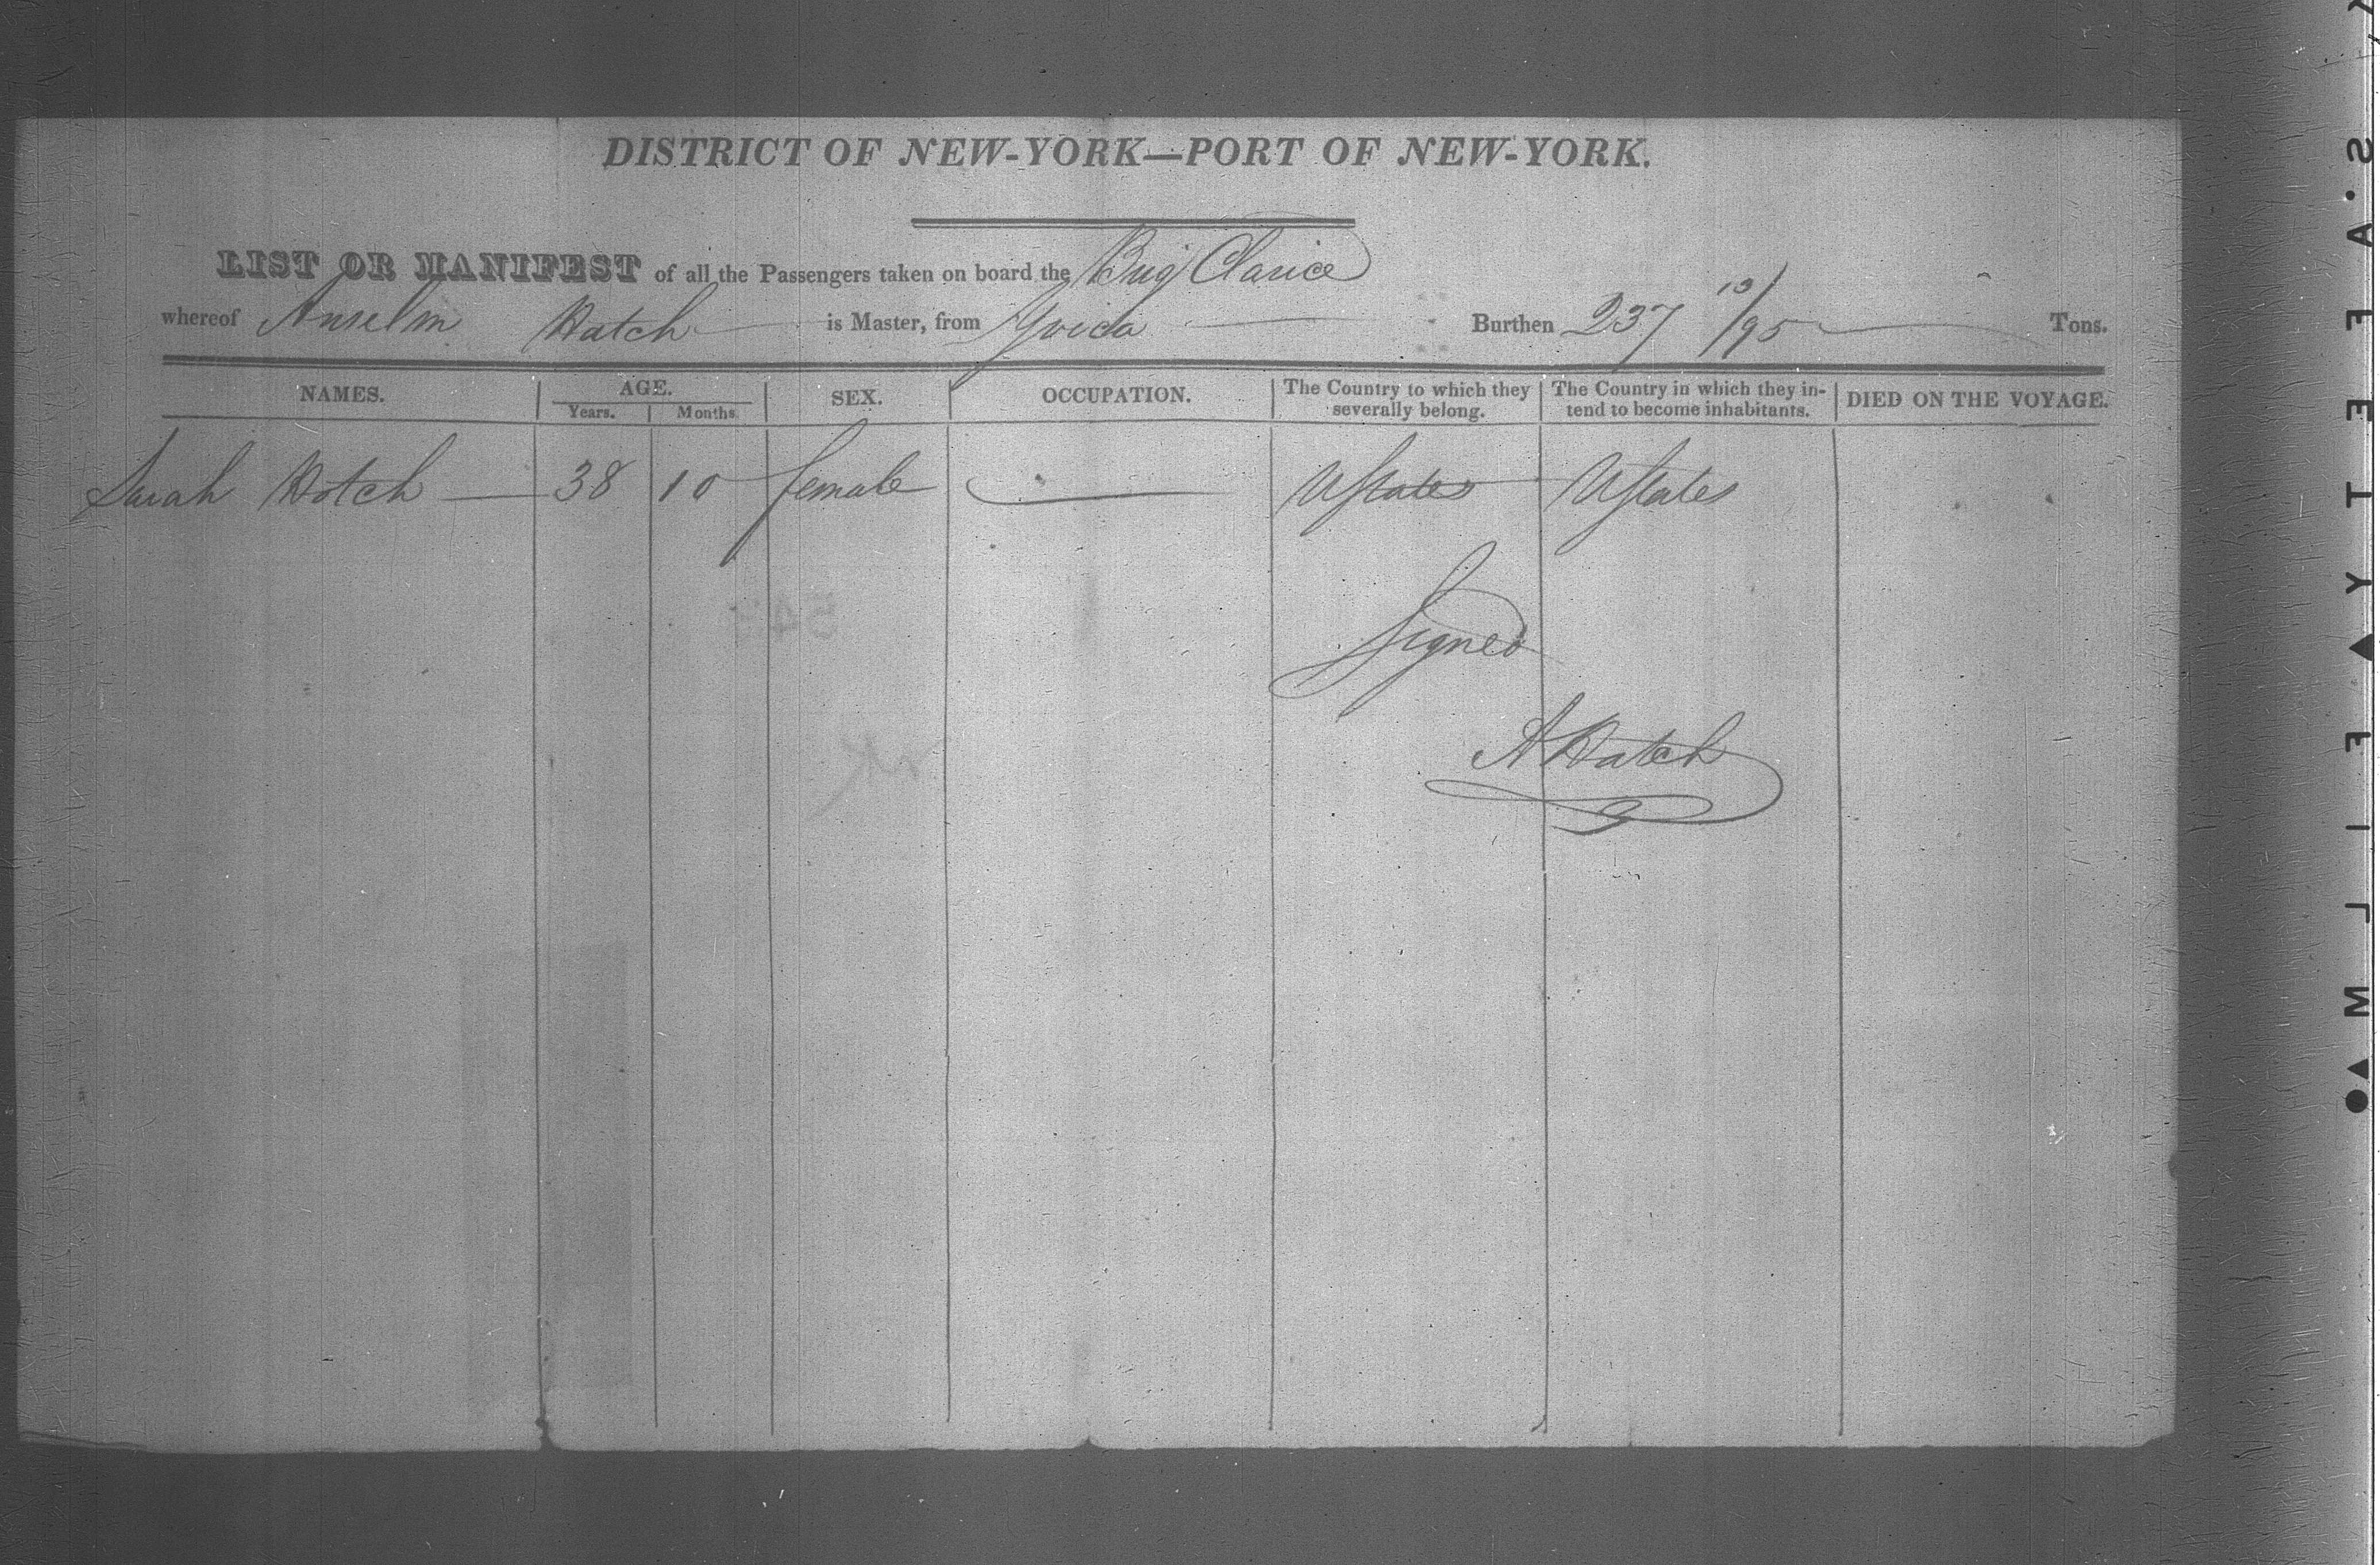 DISTRICT OF NEW-YORK—PORT OF NEW-YORK.
LIST OR MANIFEST of all the Passengers taken on board the Brig Clarice
whereof Anselm Hatch is Master, from Yvica Burthen 237 13/95 Tons.
NAMES. AGE. Years. Months. SEX. OCCUPATION. The Country to which they severally belong. The Country in which they intend to become inhabitants. DIED ON THE VOYAGE.
Sarah Hatch 38 10 female UStates UStates
Signed
A Hatch